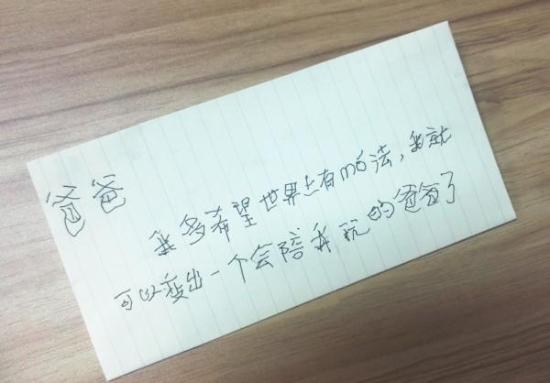 爸爸
我多希望世界上有mó法，我就
可以变出一个会陪我玩的爸爸了